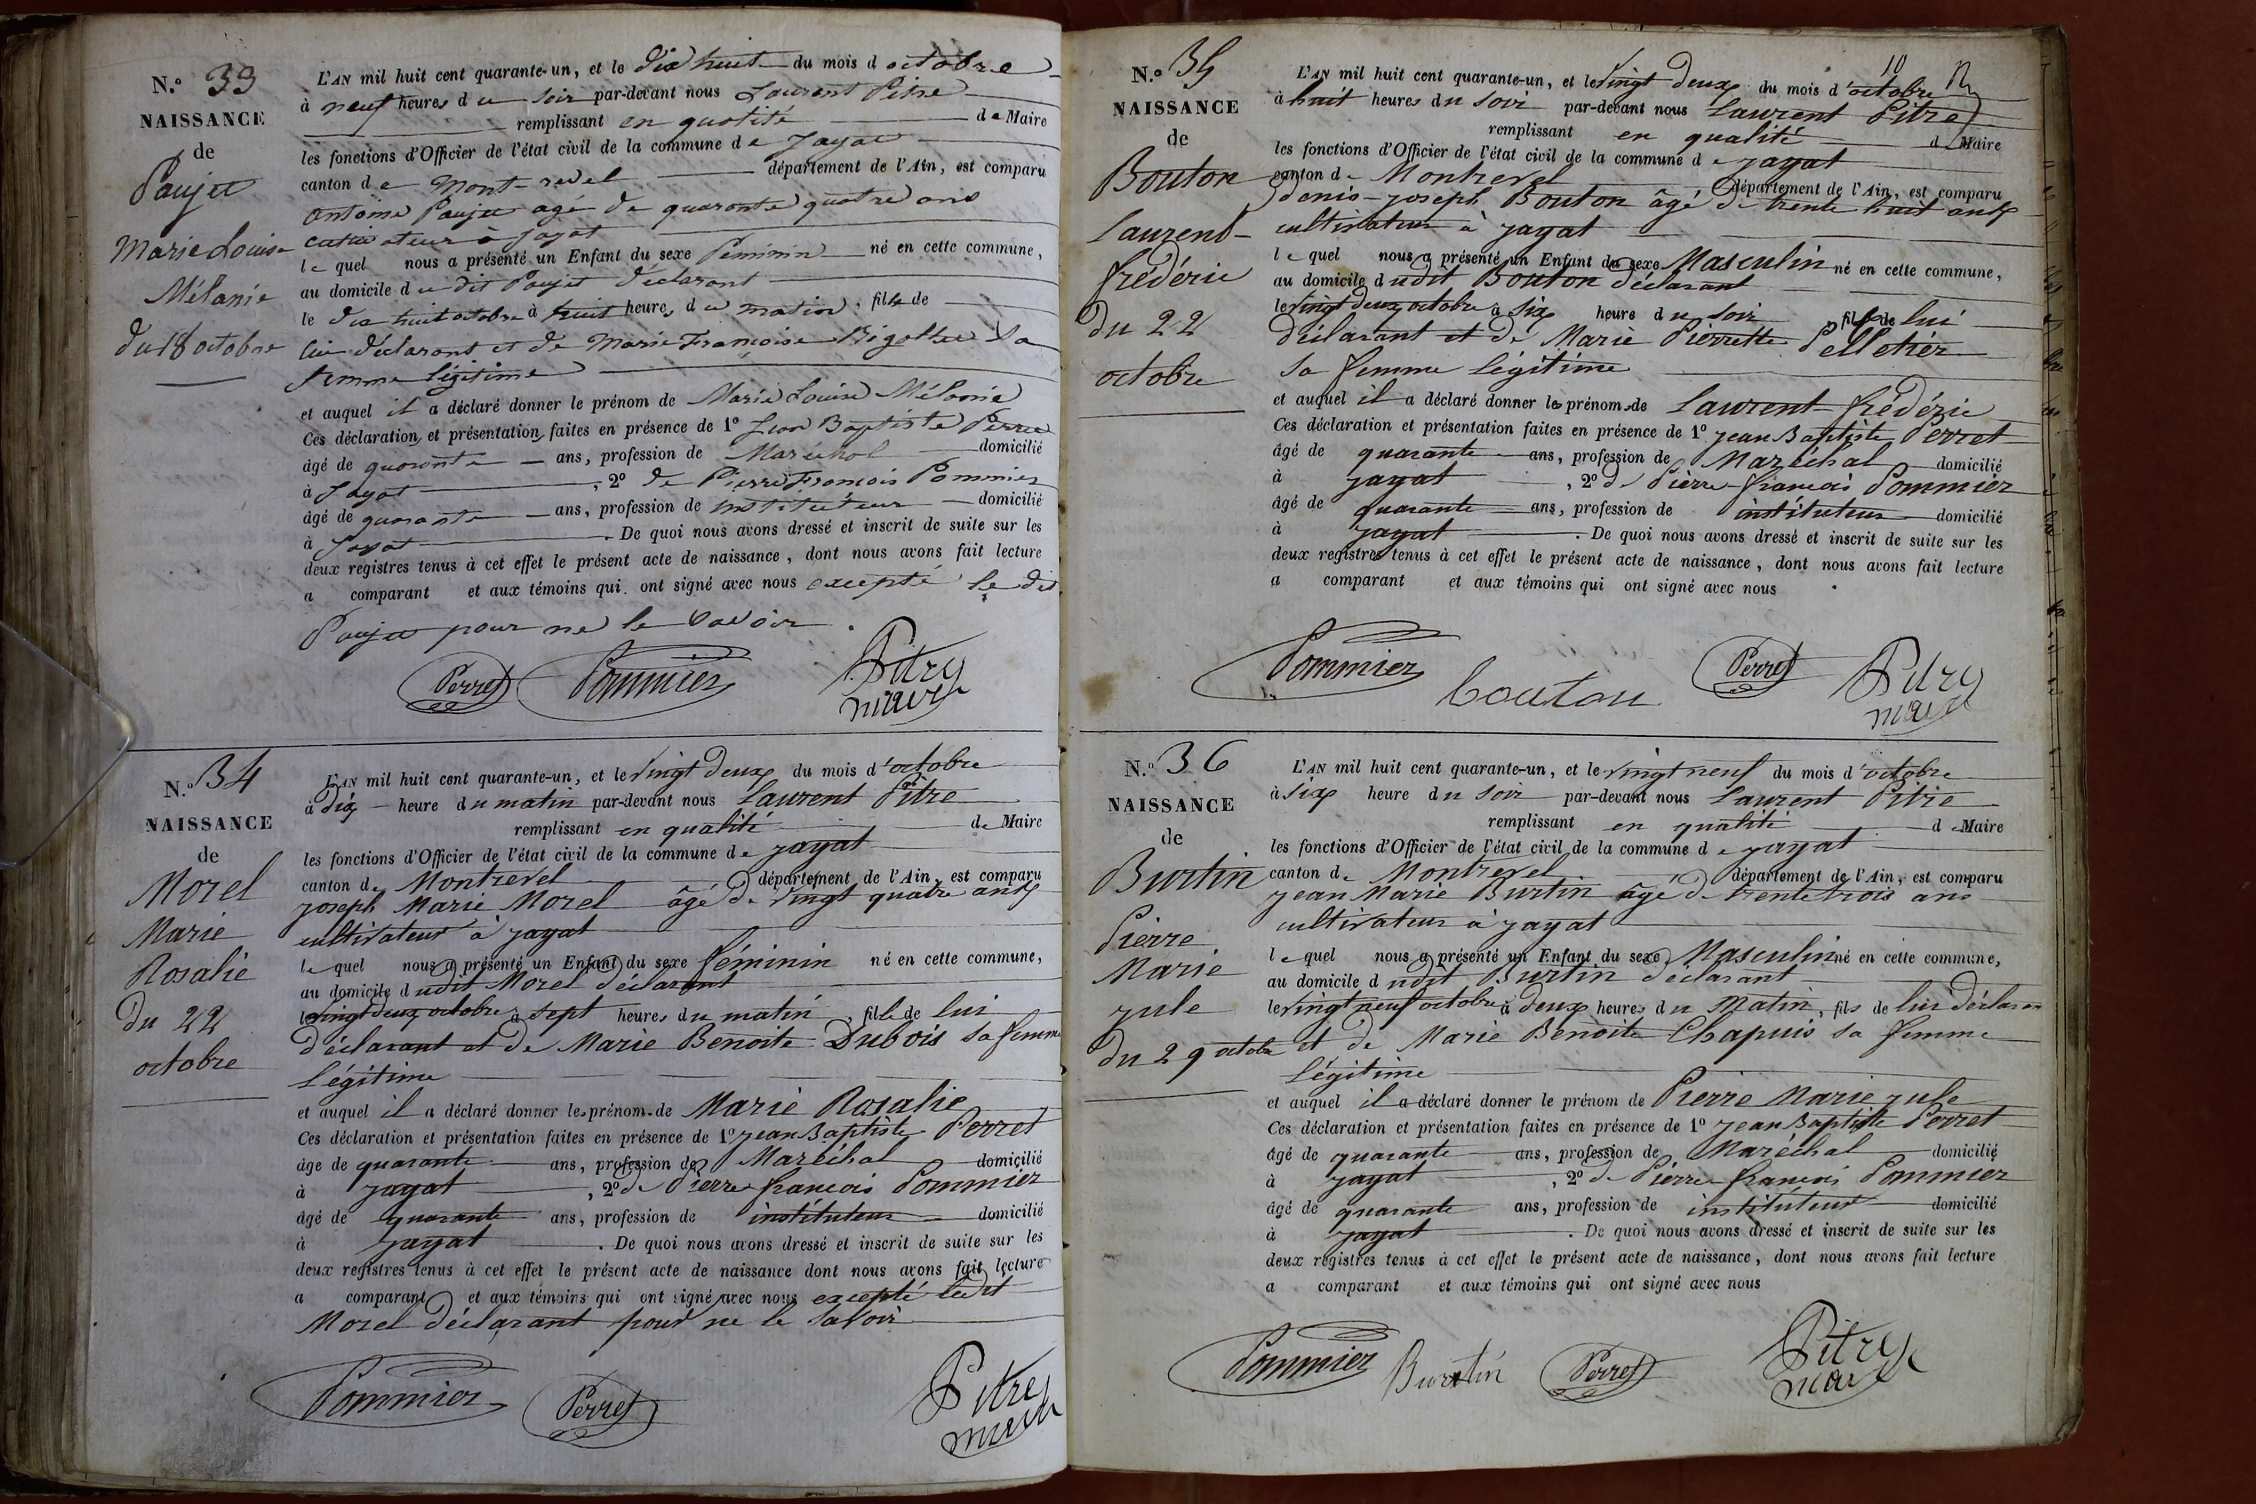 N.º 33
NAISSANCE
de
Paujet
Marie Louise
Mélanie
du 18 octobre
L'AN mil huit cent quarante-un, et le dix huit du mois d octobre
à neuf heures du soir par-devant nous Laurent Pitre
remplissant en qualité de Maire
les fonctions d'Officier de l'état civil de la commune de Jayat
canton de Mont-revel département de l'Ain, est comparu
antoine Paujet agé de quarante quatre ans
cultivateur à Jayat
le quel nous a présenté un Enfant du sexe féminin né en cette commune,
au domicile du dit Paujet déclarant
le dix huit octobre à huit heures du matin, fille de
lui déclarant et de Marie Françoise sa
femme légitime
et auquel il a déclaré donner le prénom de Marie Louise Mélanie
Ces déclaration et présentation faites en présence de 1º Jean Baptiste Perret
âgé de quarante ans, profession de Maréchal domicilié
à Jayat , 2º de Pierre François Pommier
âgé de quarante ans, profession de instituteur domicilié
à Jayat . De quoi nous avons dressé et inscrit de suite sur les
deux registres tenus à cet effet le présent acte de naissance, dont nous avons fait lecture
a comparant et aux témoins qui ont signé avec nous excepté le dit
Paujet pour ne le savoir.
Perret Pommier Pitre
maire
N.º 34
NAISSANCE
de
Morel
Marie
Rosalie
du 22
octobre
L'AN mil huit cent quarante-un, et le vingt deux du mois d'octobre
à dix heure du matin par-devant nous Laurent Pitre
remplissant en qualité de Maire
les fonctions d'Officier de l'état civil de la commune de jayat
canton de Montrevel département de l'Ain, est comparu
joseph Marie Morel âgé de vingt quatre ans
cultivateur à jayat
le quel nous a présenté un Enfant du sexe féminin né en cette commune,
au domicile dudit Morel déclarant
le vingt deux octobre à sept heures du matin, fille de lui
déclarant et de Marie Benoite Dubois sa femme
légitime
et auquel il a déclaré donner les prénom de Marie Rosalie
Ces déclaration et présentation faites en présence de 1º jean Baptiste Perret
âge de quarante ans, profession de Maréchal domicilié
à jayat , 2º de Pierre françois Pommier
âgé de quarante ans, profession de instituteur domicilié
à jayat . De quoi nous avons dressé et inscrit de suite sur les
deux registres tenus à cet effet le présent acte de naissance dont nous avons fait lecture
a comparant et aux témoins qui ont signé avec nous excepté ledit
Morel déclarant pour ne le savoir
Pommier Perret Pitre
maire
10
N.º 35
NAISSANCE
de
Bouton
Laurent
frédéric
du 22
octobre
L'AN mil huit cent quarante-un, et le vingt deux du mois d'octobre
à huit heures du soir par-devant nous Laurent Pitre
remplissant en qualité d Maire
les fonctions d'Officier de l'état civil de la commune de jayat
canton de Montrevel département de l'Ain, est comparu
denis-joseph Bouton âgé de trente huit ans
cultivateur à jayat
le quel nous a présenté un Enfant du sexe Masculin né en cette commune,
au domicile dudit Bouton déclarant
le vingt deux octobre à six heure du soir fils de lui
déclarant et de Marie Pierrette Pelletier
sa femme légitime
et auquel il a déclaré donner les prénoms de Laurent frédéric
Ces déclaration et présentation faites en présence de 1º jean Baptiste Perret
âgé de quarante ans, profession de Maréchal domicilié
à jayat , 2º de Pierre françois Pommier
âgé de quarante ans, profession de instituteur domicilié
à jayat . De quoi nous avons dressé et inscrit de suite sur les
deux registres tenus à cet effet le présent acte de naissance, dont nous avons fait lecture
a comparant et aux témoins qui ont signé avec nous
Pommier bouton Perret Pitre
maire
N.º 36
NAISSANCE
de
Burtin
Pierre
Marie
jule
du 29 octobre
L'AN mil huit cent quarante-un, et le vingt neuf du mois d'octobre
à six heure du soir par-devant nous Laurent Pitre
remplissant en qualité de Maire
les fonctions d'Officier de l'état civil de la commune de jayat
canton de Montrevel département de l'Ain, est comparu
jean Marie Burtin âgé de trente trois ans
cultivateur à jayat
le quel nous a présenté un Enfant du sexe Masculin né en cette commune,
au domicile dudit Burtin déclarant
le vingt neuf octobre à deux heures du Matin, fils de lui déclaran
et de Marie Benoite Chapuis sa femme
légitime
et auquel il a déclaré donner le prénom de Pierre Marie jule
Ces déclaration et présentation faites en présence de 1º jean Baptiste Perret
âgé de quarante ans, profession de Maréchal domicilié
à jayat , 2º de Pierre françois Pommier
âgé de quarante ans, profession de instituteur domicilié
à jayat . De quoi nous avons dressé et inscrit de suite sur les
deux registres tenus à cet effet le présent acte de naissance, dont nous avons fait lecture
a comparant et aux témoins qui ont signé avec nous
Pommier Burtin Perret Pitre
maire